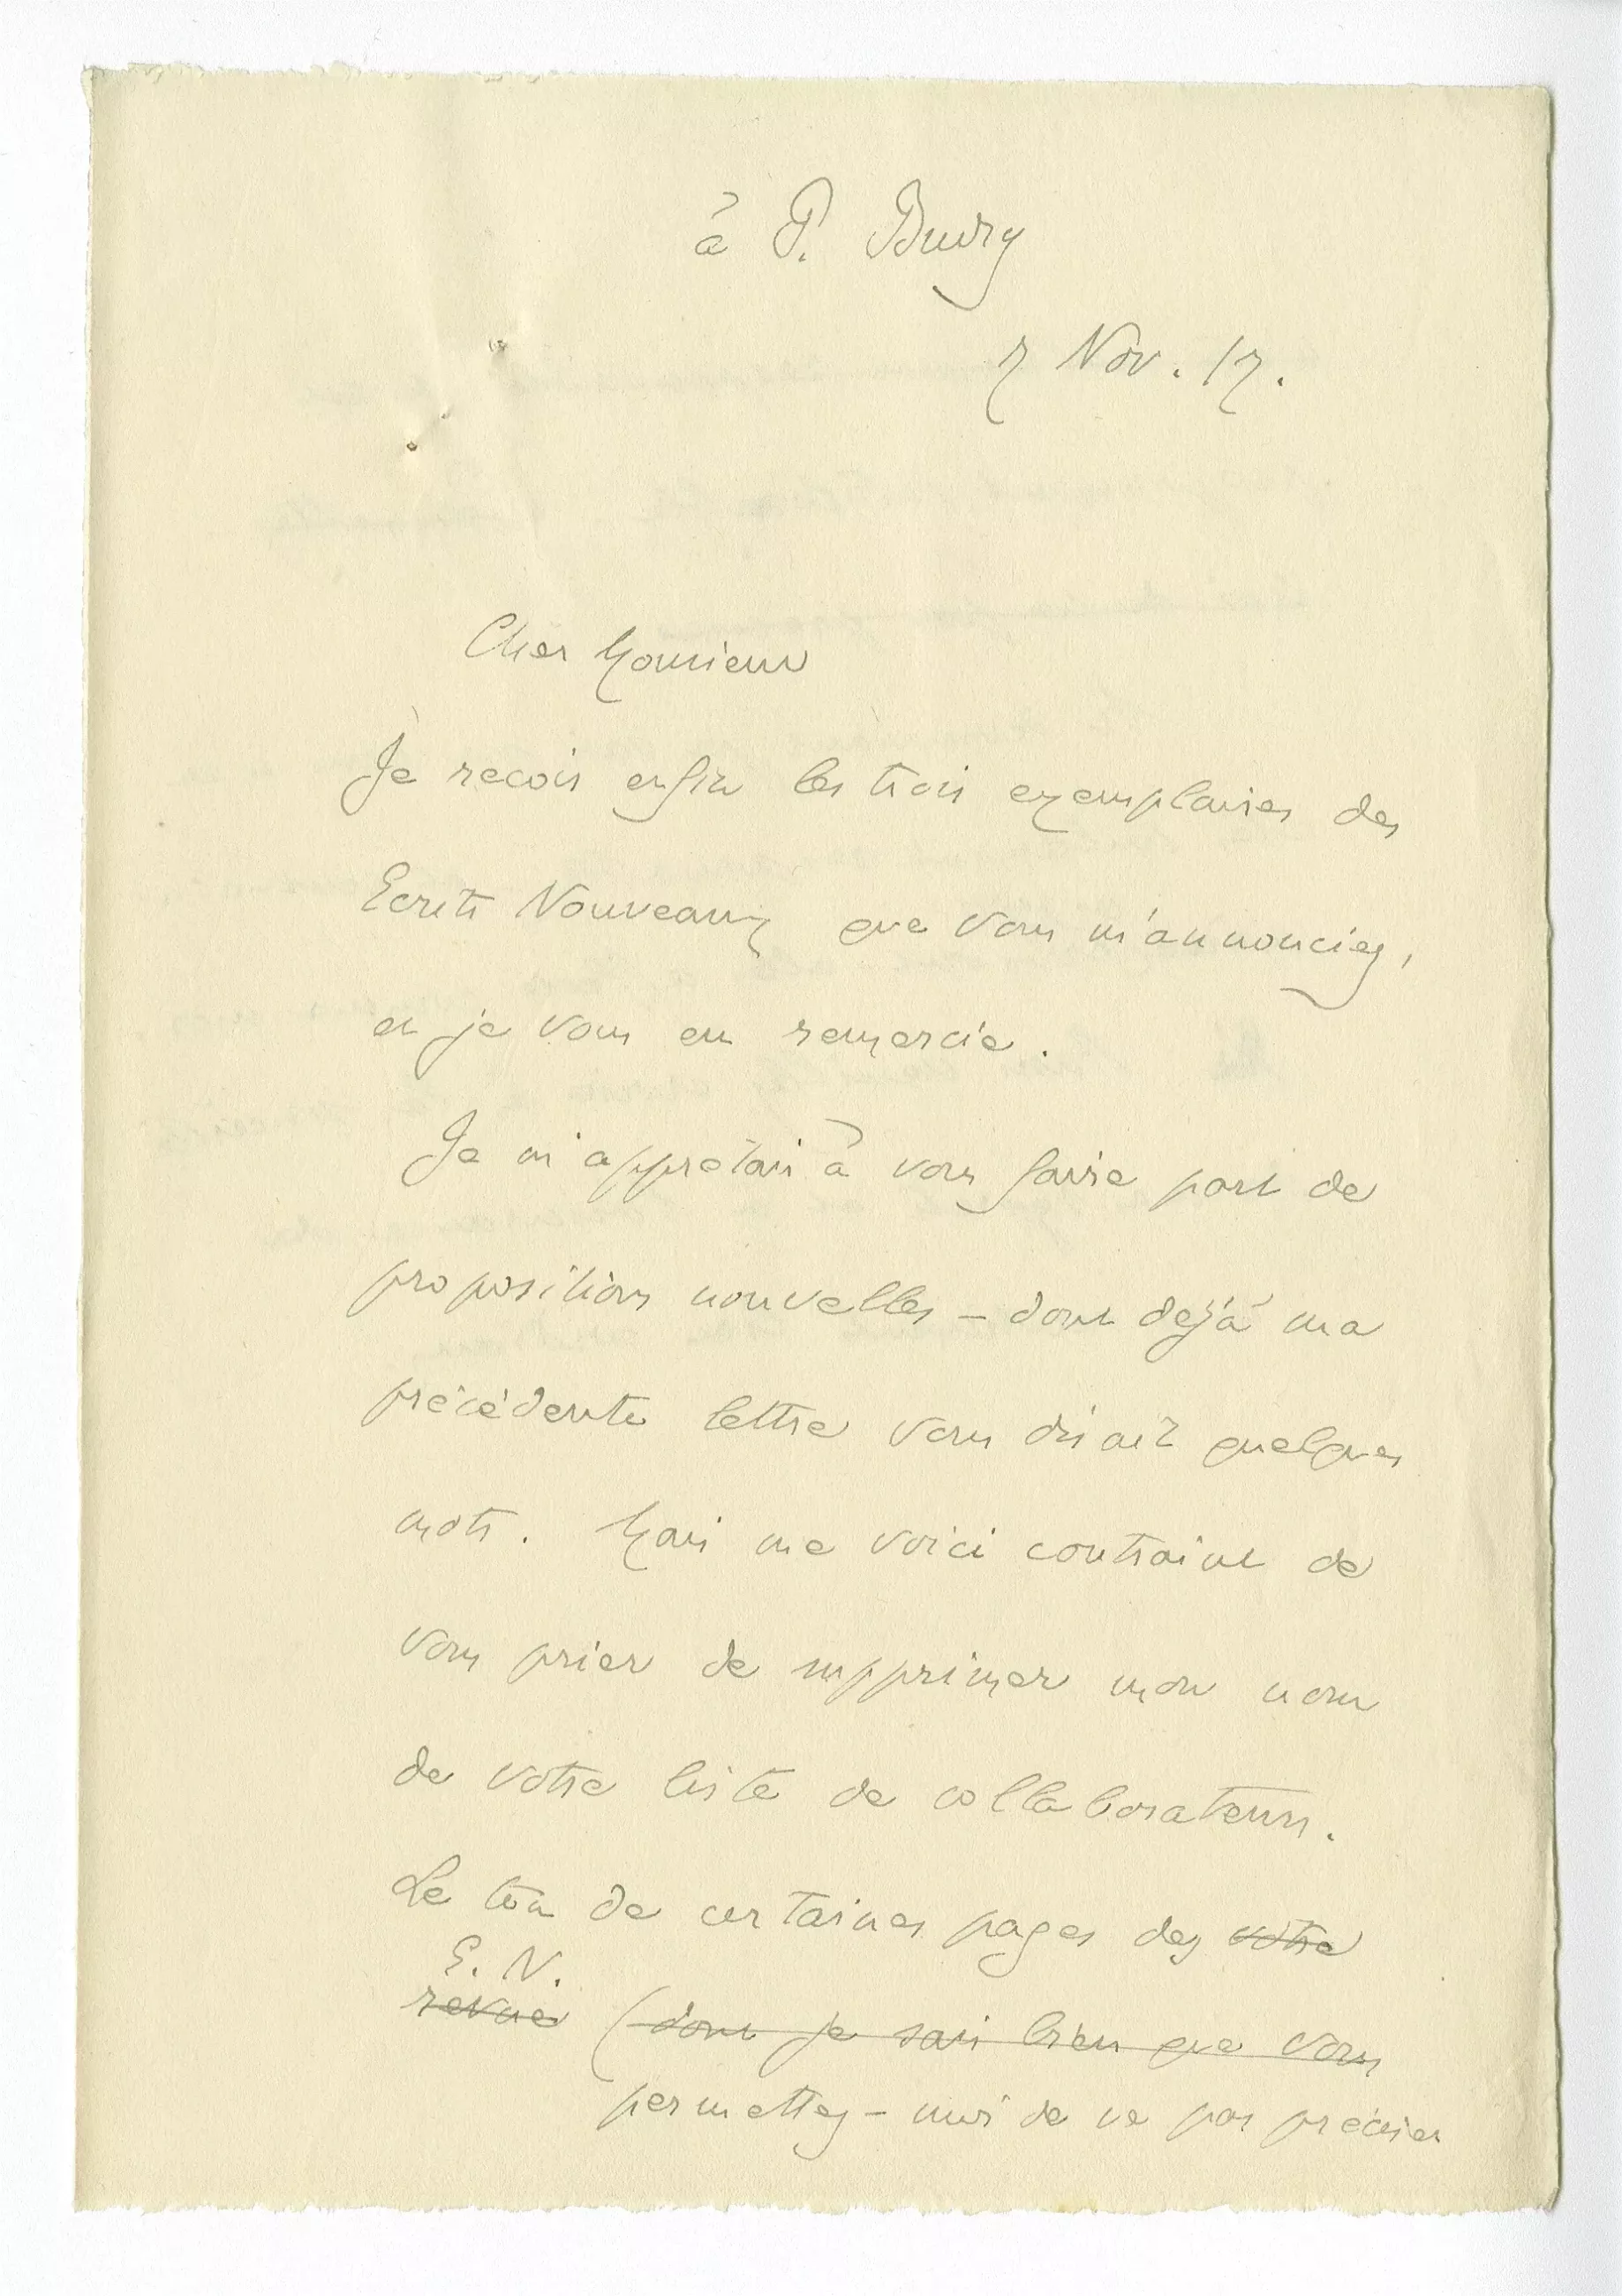 à P. Budry
7 Nov. 17.
Cher Monsieur
Je recois enfin les trois exemplaires des
Ecrits Nouveaux que vous m'annonciez,
et je vous en remercie.
Je m'apprêtais à vous faire part de
propositions nouvelles – dont déjà ma
précédente lettre vous disait quelques
mots. Mais me voici contraint de
vous prier de supprimer mon nom
de votre liste de collaborateurs.
Le ton de certaines pages des votre
E. N.
revue (dont je sais bien que vous
permettez-moi de ne pas préciser